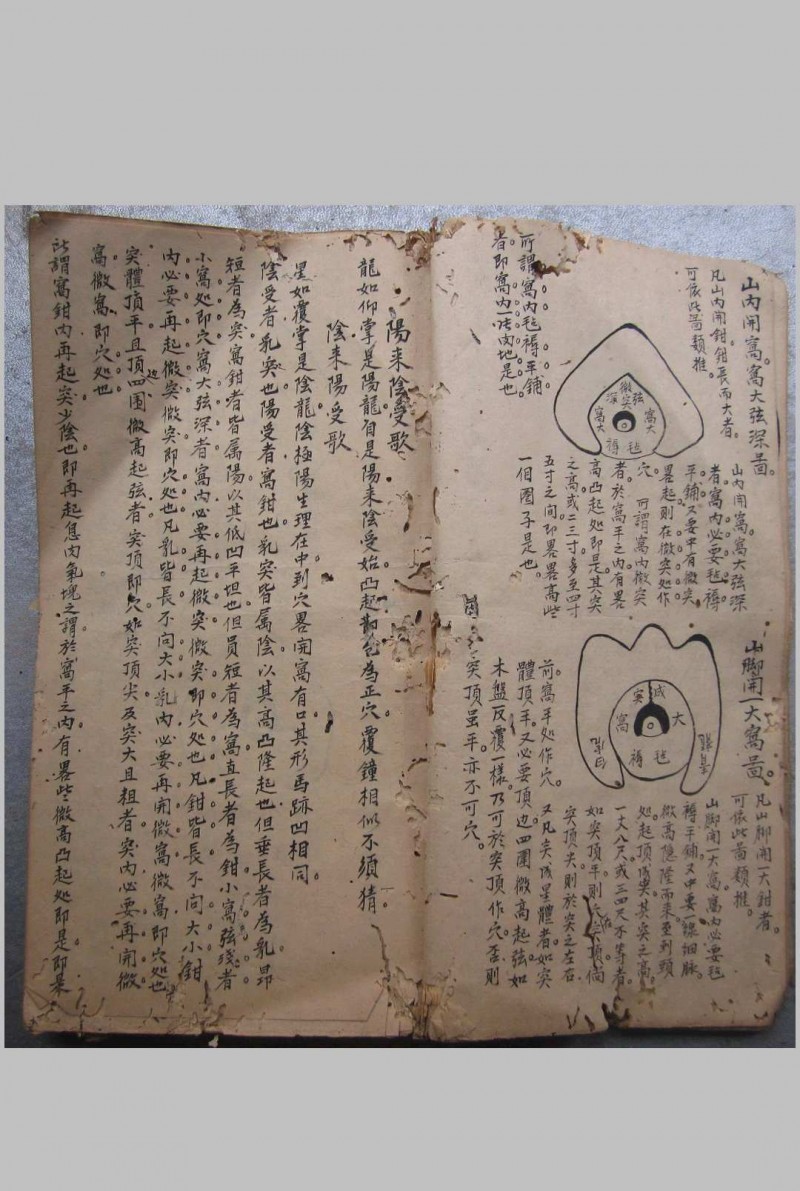 山內開窩。窩大弦深啚。
凡山內開鉗鉗長而大者。
可依此啚類推。
微
深突弦
窩大
窩大
毡
褥
山內開窩。窩大弦深
者。窩內必要毡褥
平鋪。又要中有微突
畧起。則在微突処作
穴。所謂窩內微突
者。於窩平之內有畧
高凸起処即是。其突
之高。或二三寸。多至四寸
五寸之间。即畧畧高些
一個圈子是也。
所謂窩內毡褥平鋪
者。即窩內一片肉地是也。
山脚開一大窩啚。
凡山脚開一大鉗者。
可依此啚類推。
突成
窩
大
褥
毡
山脚開一大窩。窩內必要毡
褥平鋪。又中要一線細脉。
微高隐隆而来。至到頭
処起頂成突。其突之高。
一丈八尺。或三四尺不等者。
如突頂平。則穴突頂。倘
突頂尖。則於突之左右
前窩平処作穴。又凡突成星體者。如突
體頂平。又必要頂边四圍微高起弦。如
木盤反覆一樣。乃可於突頂作穴。否則
突頂虽平。亦不可穴。
陽来陰受歌
龍如仰掌是陽龍。自是陽来陰受。始凸起為正穴。覆鐘相似不須猜。
陰来陽受歌
星如覆掌是陰龍。陰極陽生理在中。到穴畧開窩有口。其形馬跡凹相同。
陰受者乳突也。陽受者窩鉗也。乳突皆属陰。以其高凸隆起也。但垂長者為乳。昂
短者為突。窩鉗者皆属陽。以其低凹平坦也。但員短者為窩。直長者為鉗。小窩弦浅者
小窩処即穴。窩大弦深者。窩內必要再起微突。微突即穴処也。凡鉗皆長。不问大小。鉗
內必要再起微突。微突即穴処也。凡乳皆長。不问大小。乳內必要再開微窩。微窩即穴処也
突體頂平。且頂四圍微高起弦者。突頂即穴。如突頂尖。及突大且粗者。突內必要再開微
窩。微窩即穴処也
此謂窩鉗內再起突。少陰也。即再起息肉氣塊之謂。於窩平之內有畧些微高凸起処即是。即杲